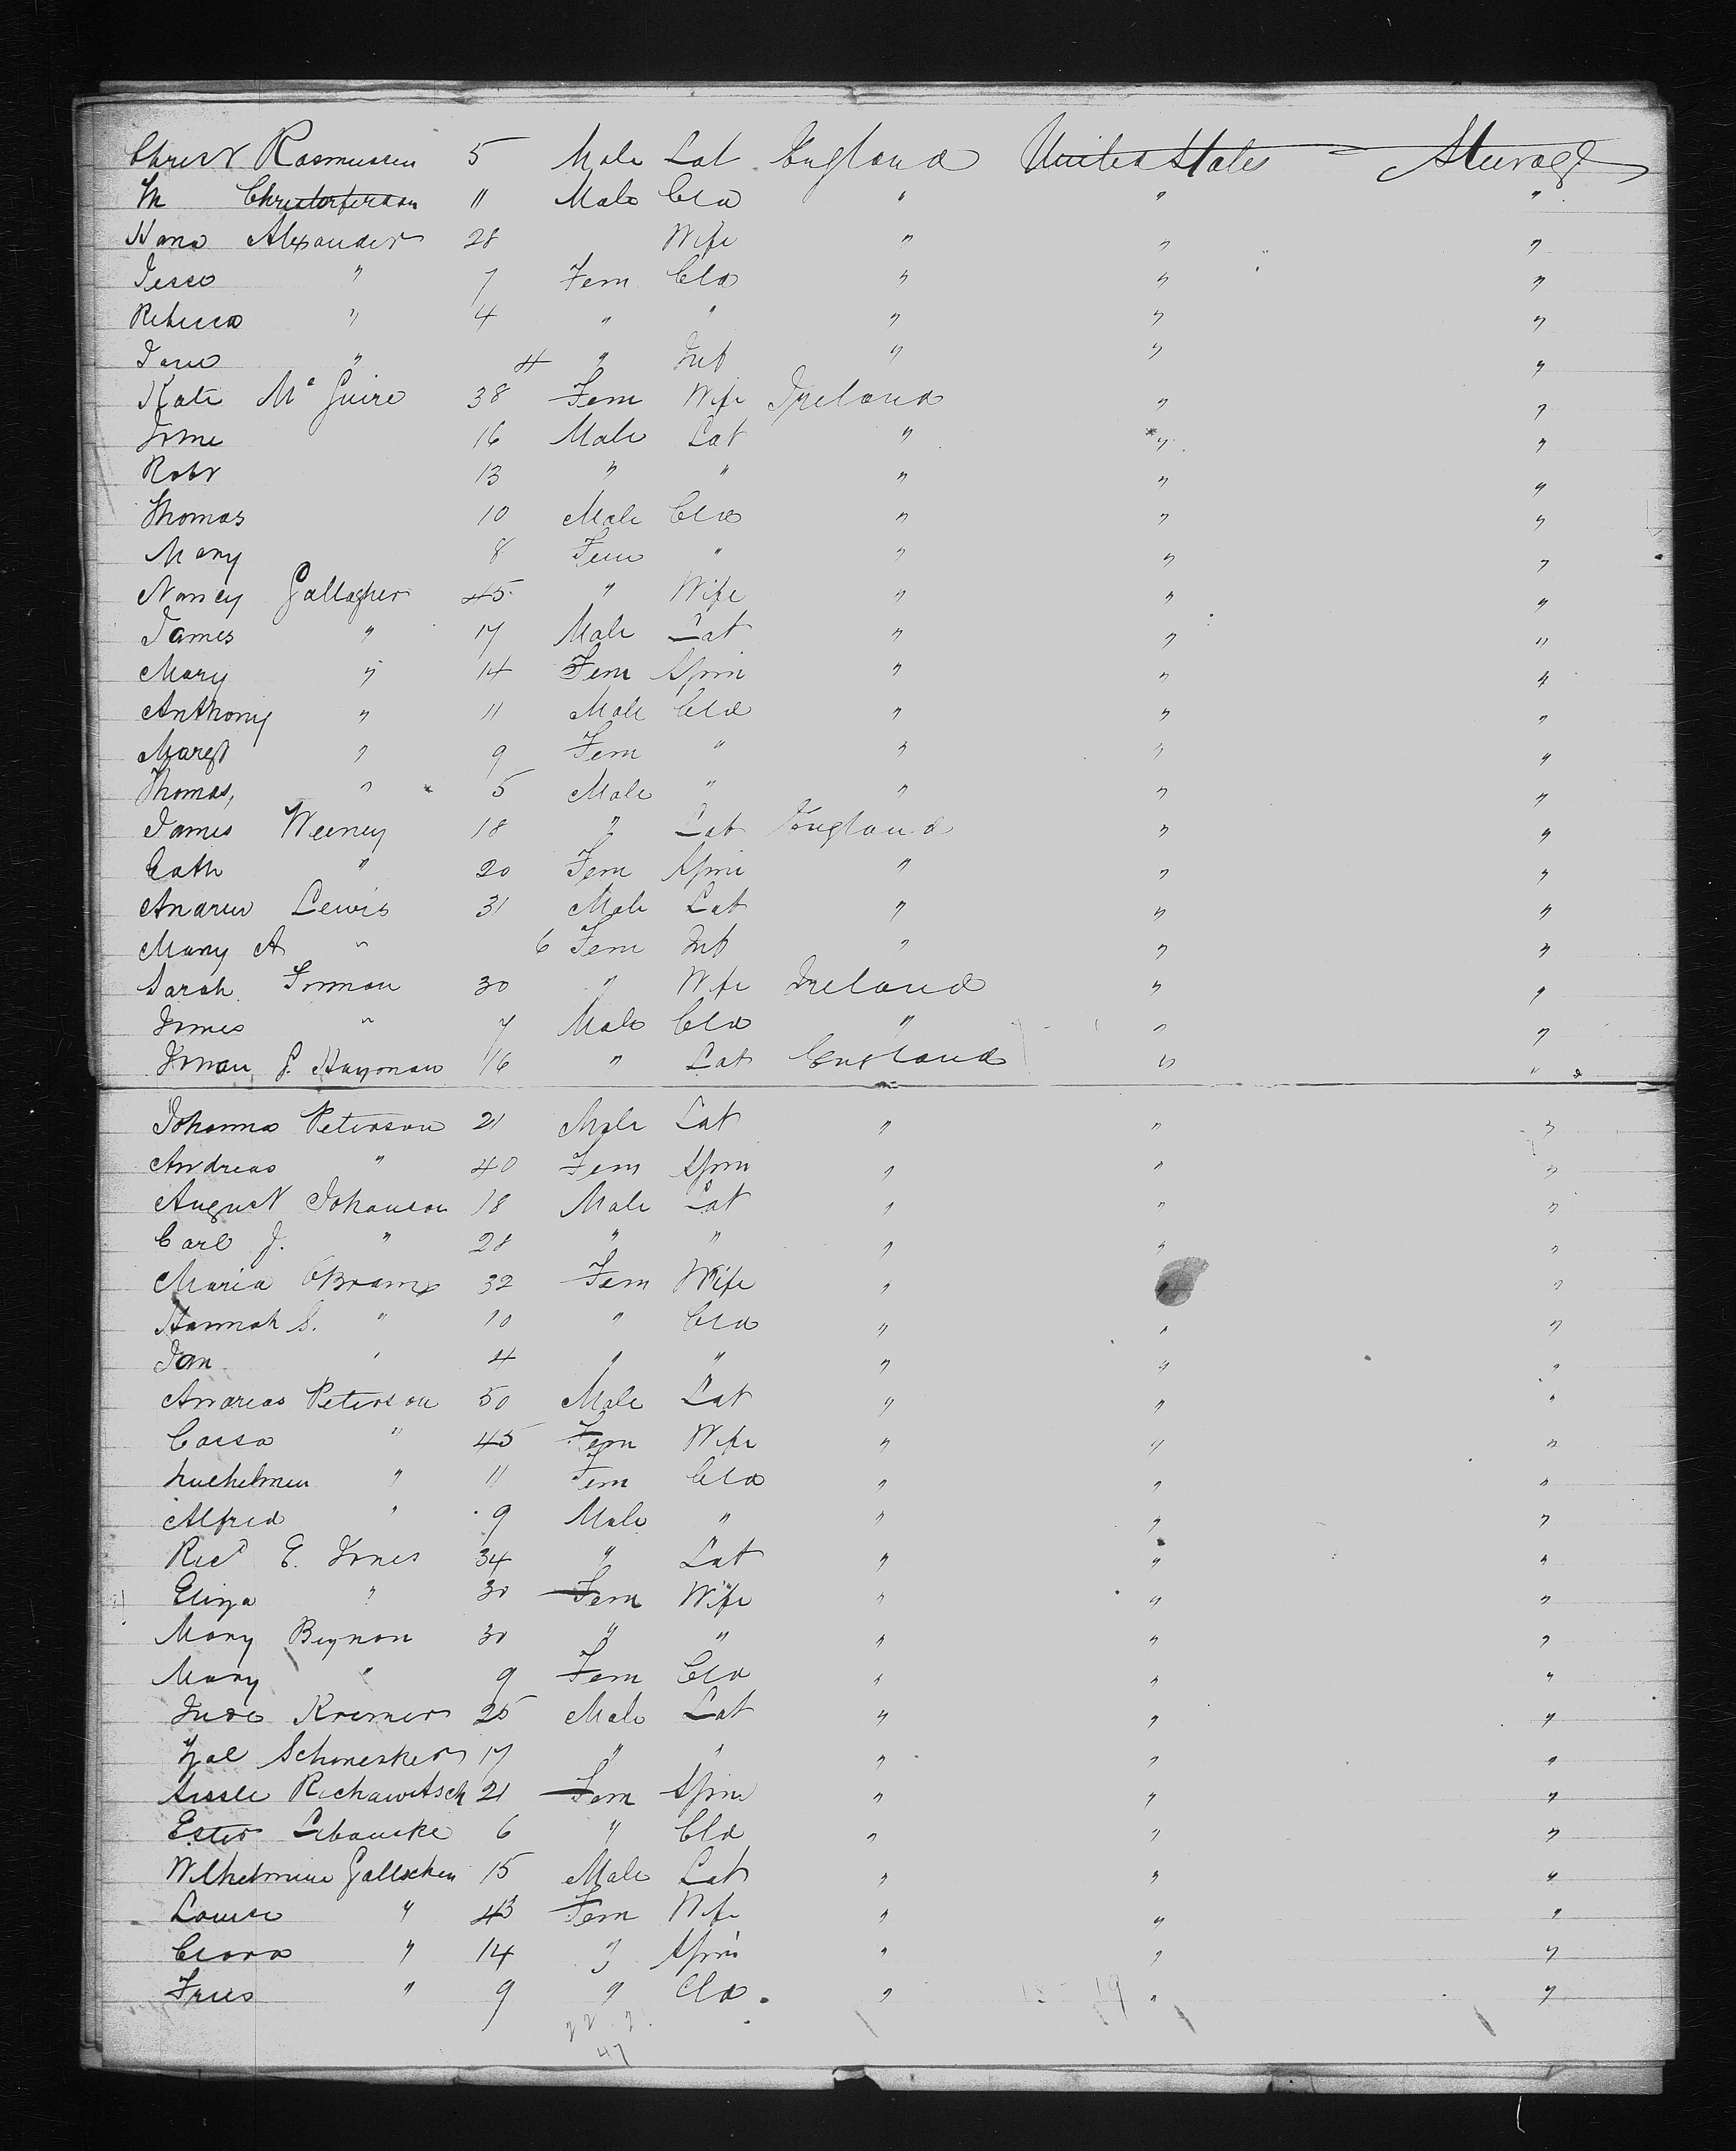 Christ Rasmussen 5 Male Lab England United States Steerage
M Christerferson 11 Male Cld " " "
Hana Alexander 28 Wife " " "
Jesse " 7 Fem Cld " " "
Rebecca " 4 " " " " "
Jane " 4 " Inf " " "
Kate McGuire 38 Fem Wife Ireland " "
16 Male Lab " " "
Robt 13 " " " " "
Thomas 10 Male Cld " " "
Mary 8 Fem " " " "
Nancy Gallagher 45 " Wife " " "
James " 17 Male Lab " " "
Mary " 14 Fem Spin " " "
Anthony " 11 Male Cld " " "
Margt " 9 Fem " " " "
Thomas, " 5 Male " " " "
James Weeney 18 " Lab England " "
Cath " 20 Fem Spin " " "
Andrew Lewis 31 Male Lab " " "
Mary A " 6 Fem Inf " " "
Sarah 30 " Wife Ireland " "
" 7 Male Cld " " "
Hayman 16 " Lab England " "
Johanna Peterson 21 Male Lab " " "
Andreas " 40 Fem Spin " " "
August Johanson 18 Male Lab " " "
Carl J. " 28 " " " " "
Maria 32 Fem Wife " " "
Hannah S. " 10 " Cld " " "
Jan " 4 " " " " "
Andreas Peterson 50 Male Lab " " "
Caisa " 45 Fem Wife " " "
" 11 Fem Cld " " "
Alfred " 9 Male " " " "
Ricd E. Jones 34 " Lab " " "
Eliza " 30 Fem Wife " " "
Mary Beynon 30 " " " " "
Mary " 9 Fem Cld " " "
Kremer 25 Male Lab " " "
Schonesker 17 " " " " "
Richawitsch 21 Fem Spin " " "
Ester Libauske 6 " Cld " " "
Wilhelmine Gallschen 15 Male Lab " " "
Louise " 43 Fem Wife " " "
Clara " 14 " Spin " " "
" 9 " Cld. " " "
47